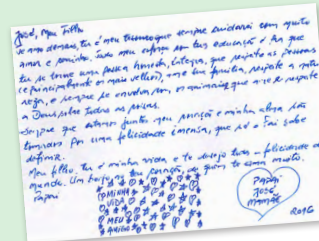 José, Meu Filho
Te amo demais, tu é meu tesouro que sempre cuidarei com muito
amor e carinho. Todo meu esforço em tua educação é pra que
tu se torne uma pessoa honesta, íntegra, que respeita as pessoas
(e principalmente os mais velhos), ame tua família, respeite a
e sempre se com os animais que e respeite
a Deus sobre todas as coisas.
Sempre que estamos juntos meu coração e minha alma são
tomados por uma felicidade imensa, que só o Pai sabe
definir.
Meu filho, tu é minha vida e te desejo toda felicidade do
mundo. Um beijo no teu coração, de quem te ama muito.
Papai
MINHA
VIDA
MEU
AMIGO
Papai
José
Mamãe
2016